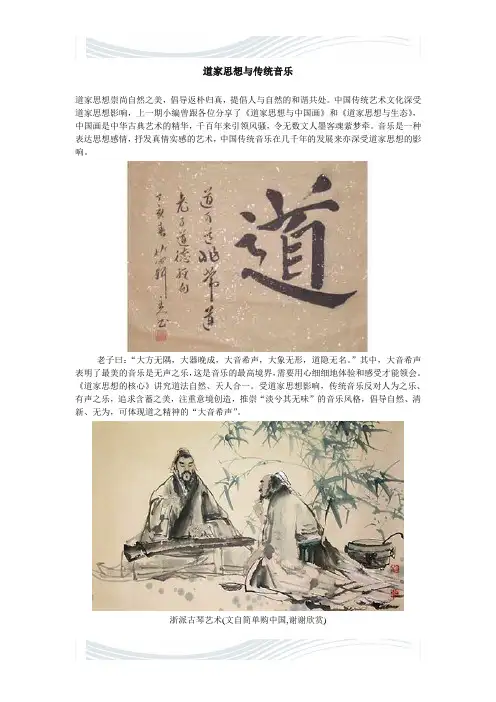 道家思想与传统音乐
道家思想崇尚自然之美，倡导返朴归真，提倡人与自然的和谐共处。中国传统艺术文化深受
道家思想影响，上一期小编曾跟各位分享了《道家思想与中国画》和《道家思想与生态》，
中国画是中华古典艺术的精华，千百年来引领风骚，令无数文人墨客魂萦梦牵。音乐是一种
表达思想感情，抒发真情实感的艺术，中国传统音乐在几千年的发展来亦深受道家思想的影
响。
道
道可道非常道
老子道德经句
老子曰：“大方无隅，大器晚成，大音希声，大象无形，道隐无名。”其中，大音希声
表明了最美的音乐是无声之乐，这是音乐的最高境界，需要用心细细地体验和感受才能领会。
《道家思想的核心》讲究道法自然、天人合一。受道家思想影响，传统音乐反对人为之乐、
有声之乐，追求含蓄之美，注重意境创造，推崇“淡兮其无味”的音乐风格，倡导自然、清
新、无为，可体现道之精神的“大音希声”。
浙派古琴艺术(文自简单购中国,谢谢欣赏)